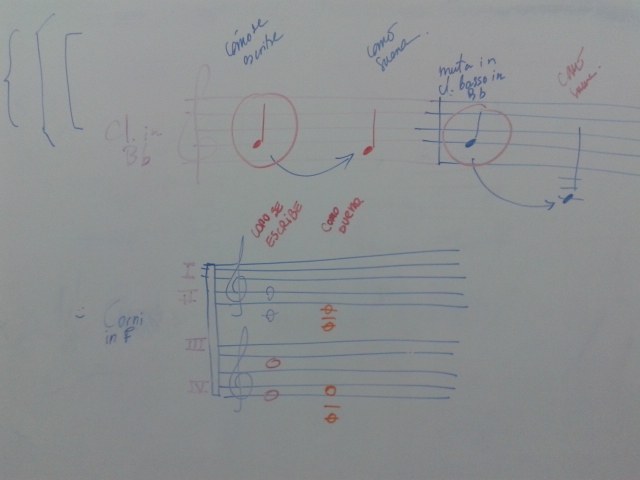 cómo se
escribe
como
suena.
muta in
cl. basso in
Bb
como
suena.
Cl. in
Bb
COMO SE
ESCRIBE
COMO
SUENA
I
II
Corni
in F
III
IV